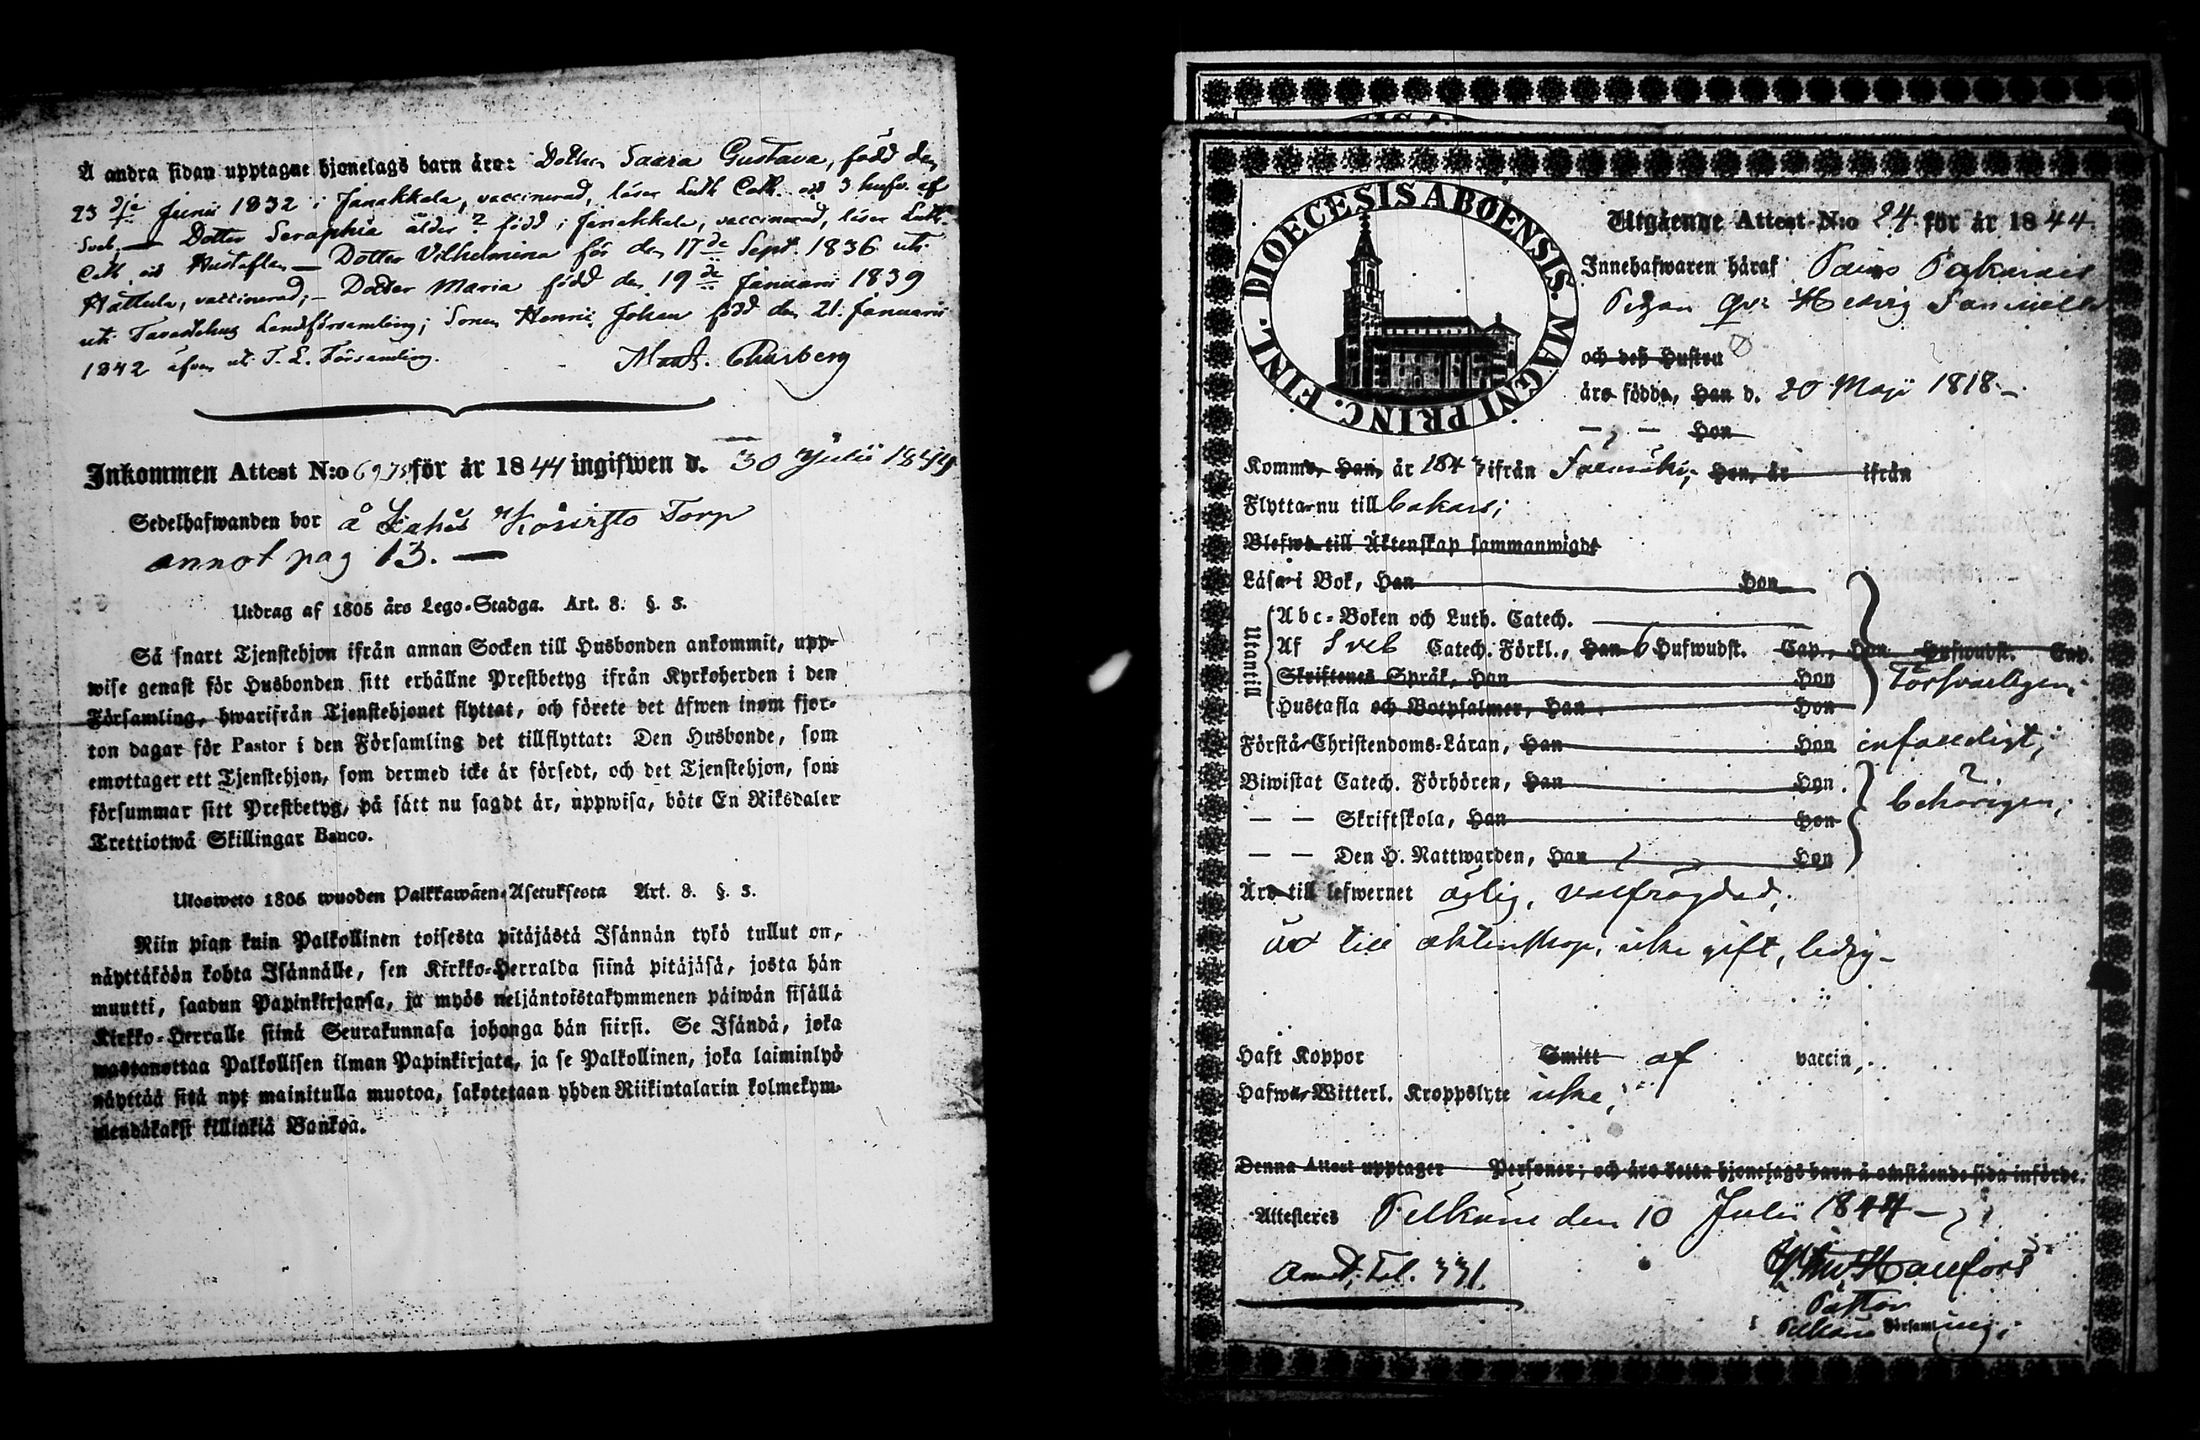 Å andra sidan upptagne hjonelags barn äro: Dotter Saara Gustava, född den
23dje Junii 1832 i Janakkala, vaccinerad, läser Luth Cath. och 3 hufv. af
Sveb. — Dotter Seraphia ålder? född i Janakkala, vaccinerad, läser Luth.
Cath och Hustaflan — Dotter Vilhelmina för den 17de Sept. 1836 uti
Hattula, vaccinerad; — Dotter Maria född den 19de Januari 1839
uti Tavastehus Landsförsamling; Sonen Henric Johan född den 21. Januarii
1842 äfven uti T. L. Församling.
Inkommen Attest N:o för år 1844 ingifwen d. 30 Julii 1844
Sedelhafwanden bor å Torp
annot pag 13. —
Utdrag af 1805 års Lego-Stadga. Art. 8. §. 3.
Så snart Tjenstehjon ifrån annan Socken till Husbonden ankommit, upp-
wise genast för Husbonden sitt erhållne Prestbetyg ifrån Kyrkoherden i den
Församling, hwarifrån Tjenstehjonet flyttat, och förete det äfwen inom fjor-
ton dagar för Pastor i den Församling det tillflyttat: Den Husbonde, som
emottager ett Tjenstehjon, som dermed icke är försedt, och det Tjenstehjon, som
försummar sitt Prestbetyg, på sätt nu sagdt är, uppwisa, böte En Riksdaler
Trettiotwå Skillingar Banco.
Ulosweto 1805 wuoden Palkkawäen-Asetuksesta Art. 8. §. 3.
Niin pian kuin Palkollinen toisesta pitäjästä Isännän tykö tullut on,
näyttäköön kohta Isännälle, sen Kirkko-Herralda siinä pitäjäsä, josta hän
muutti, saadun Papinkirjansa, ja myös neljäntoistakymmenen päiwän sisällä
Kirkko-Herralle siinä Seurakunnasa johonga hän siirsi. Se Isändä, joka
wastanottaa Palkollisen ilman Papinkirjata, ja se Palkollinen, joka laiminlyö
näyttää sitä nyt mainitulla muotoa, sakotetaan yhden Riikintalarin kolmekym-
mendäkaksi killinkiä Bankoa.
DIOECESIS ABOENSIS. MAGNI PRINC. FINL.
Utgående Attest N:o 24 för år 1844.
Innehafwaren häraf
Pigan Hedvig
och deß Hustru
äro födde, Han d. 20 Maji 1818 —
— — Hon
Komme, Han, år 1843 ifrån Hon, år ifrån
Flytta nu till
Blefwo till Äktenskap sammanwigde
Läsa i Bok, Han Hon
Utantill
Abc-Boken och Luth. Catech.
Af Sveb Catech. Förkl., Han 6 Hufwudst. Cap., Hon Hufwudst. Cap.
Skriftenes Språk, Han Hon försvarligen;
Hustafla och Botpsalmer, Han Hon
Förstå Christendoms-Läran, Han Hon enfaldigt;
Biwistat Catech. Förhören, Han Hon
— — Skriftskola, Han Hon behörigen;
— — Den H. Nattwarden, Han Hon
Äro till lefwernet ärlig, välfrägdad;
till äktenskap, icke gift, ledig —
Haft Koppor Smitt af vaccin,
Hafwa Witterl. Kroppslyte icke;
Denna Attest upptager Personer; och äro detta hjonelags barn å omstående sida införde.
Attesteres Pelkäne den 10 Julii 1844 —
Annot. Fol. 331.
Pastor
Pelkäne Församling;